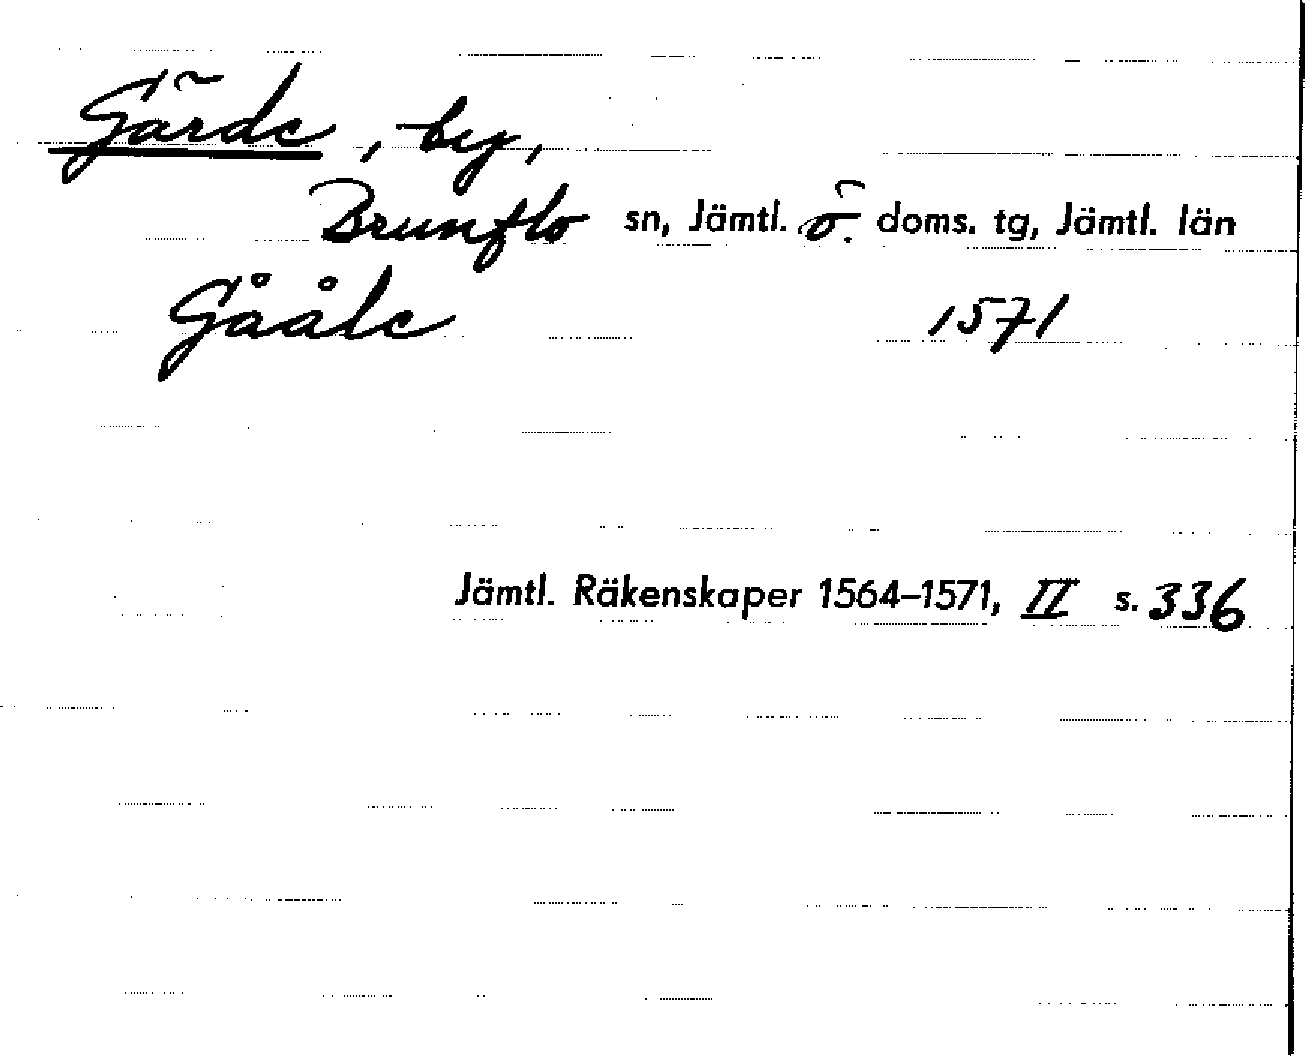 Gärde, by,
Brunflo sn, Jämtl. ö. doms. tg, Jämtl. län
Gååle 1571
Jämtl. Räkenskaper 1564–1571, II s. 336